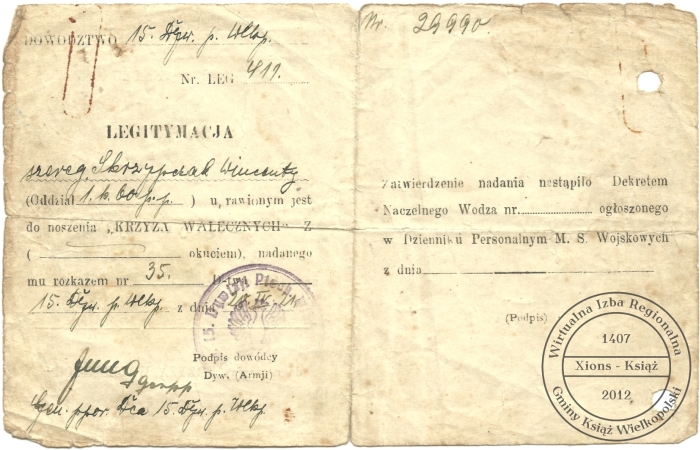 DOWÓDZTWO 15. Dyw. p. Wlkp.
Nr. LEG 411.
LEGITYMACJA
szereg. Skrzypczak Wincenty
(Oddział 1. k. 60 p. p. ) u, rawionym jest
do noszenia „KRZYŻA WALECZNYCH" Z
( okuciem), nadanego
mu rozkazem nr 35.
15. Dyw. p. Wlkp. z dnia
Podpis dowódcy
Dyw. (Armji)
Jung
Gen. ppor. Dca 15. Dyw. p. Wlkp.
Nr. 29990.
Zatwierdzenie nadania nastąpiło Dekretem
Naczelnego Wodza nr. ogłoszonego
w Dzienniku Personalnym M. S. Wojskowych
z dnia
(Podpis)
Wirtualna Izba Regionalna
1407
Xions - Książ
2012
Gminy Książ Wielkopolski